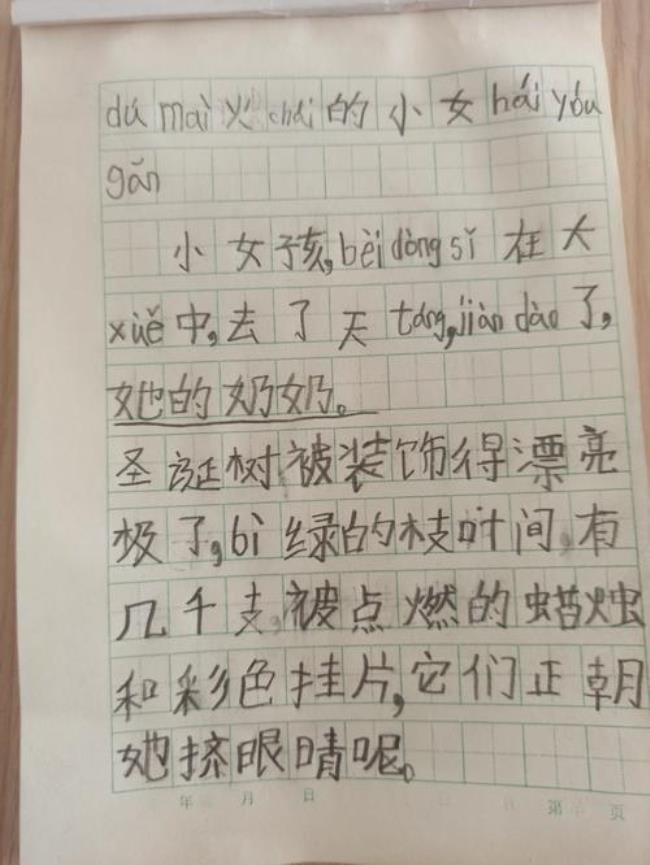 dú maì火chái的小女hái yóu
gǎn
小女孩,bèi dòng sǐ在大
xùě中,去了天táng,jiàn dào了,
她的奶奶。
圣诞树被装饰得漂亮
极了,bì绿的枝叶间,有
几千支,被点燃的蜡烛
和彩色挂片,它们正朝
她挤眼睛呢。
年 月 日 第 页